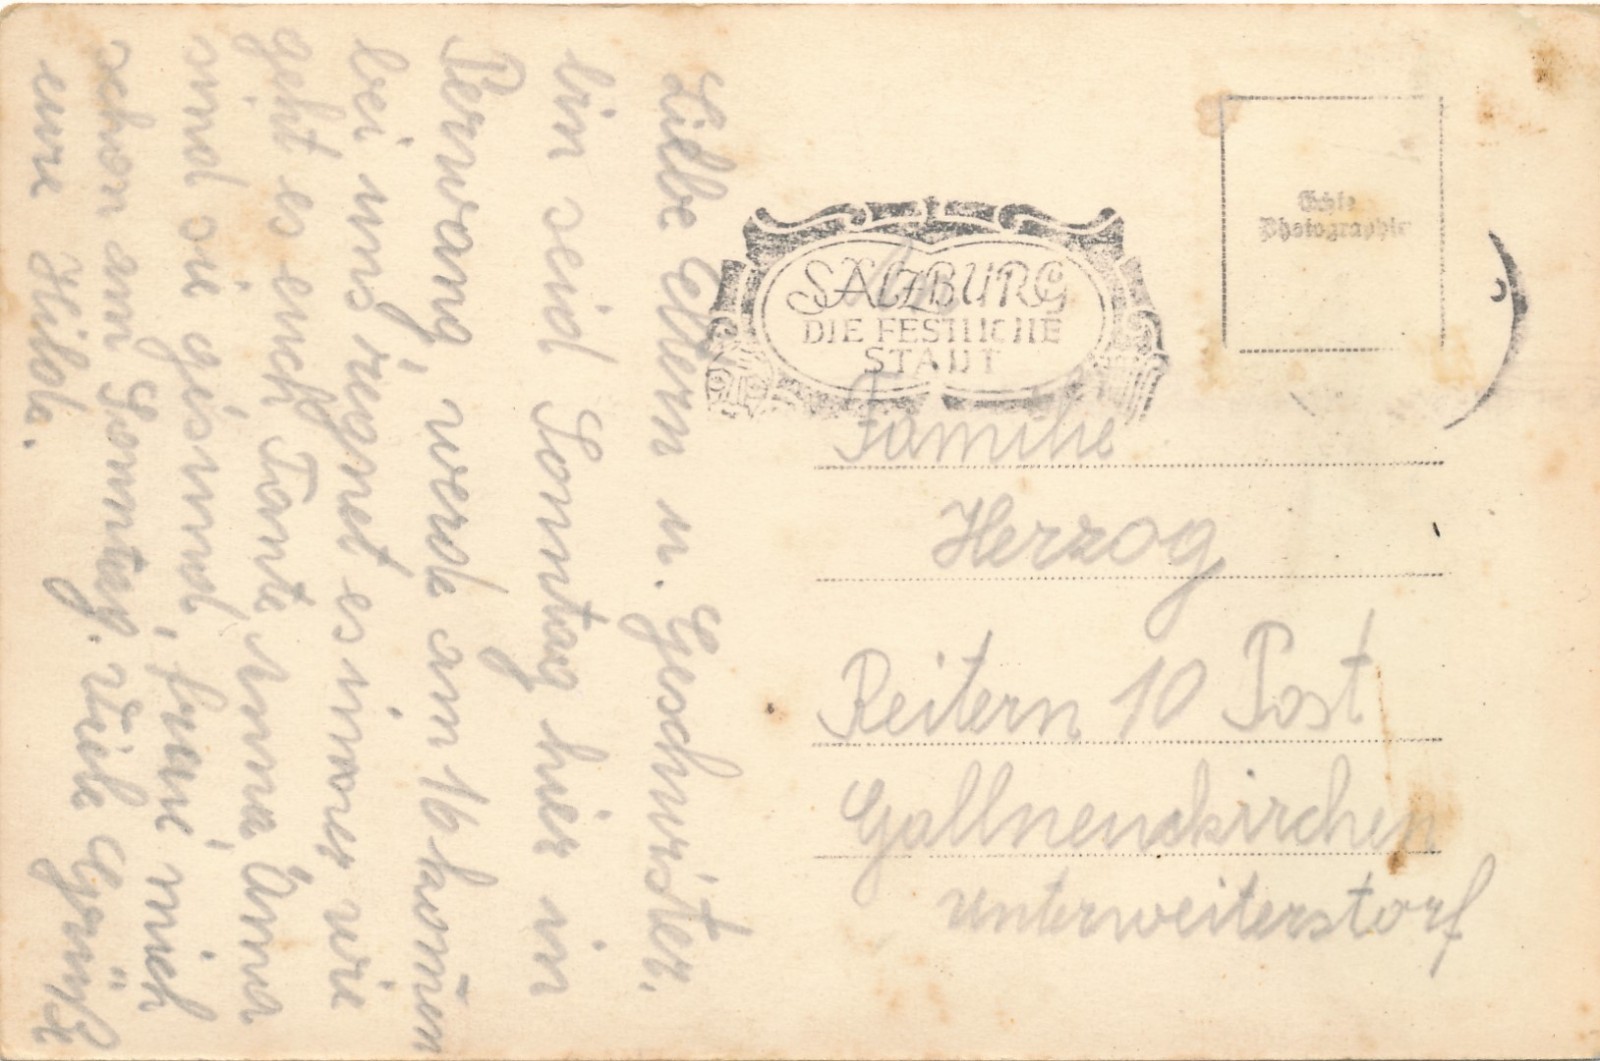 Liebe Eltern u. Geschwister.
bin seid Sonntag hier in
Perwang, werde am 16 kom̄en
bei uns regnet es im̄er wie
geht es euch Tante Anna
sind sie gesund, freue mich
schon am Sonntag. Viele Grüße
eure Hilda.
SALZBURG
DIE FESTLICHE
STADT
Echte
Photographie
An
Familie
Herzog
Reitern 10 Post
Gallneukirchen
Unterweiterstorf